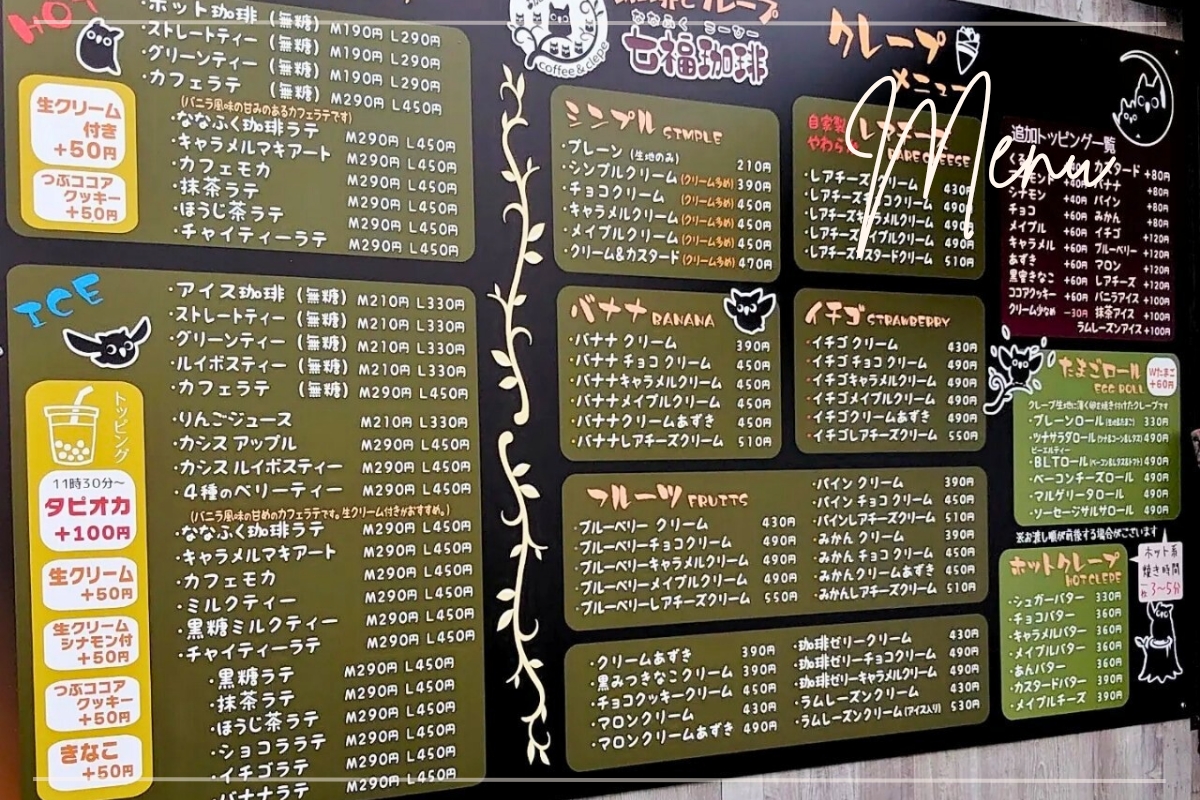 HOT
・ホット珈琲（無糖） M190円 L290円
・ストレートティー（無糖） M190円 L290円
・グリーンティー（無糖） M190円 L290円
・カフェラテ（無糖） M290円 L450円
(バニラ風味の甘みのあるカフェラテです)
・ななふく珈琲ラテ M290円 L450円
・キャラメルマキアート M290円 L450円
・カフェモカ M290円 L450円
・抹茶ラテ M290円 L450円
・ほうじ茶ラテ M290円 L450円
・チャイティーラテ M290円 L450円
生クリーム
付き
+50円
つぶココア
クッキー
+50円
ICE
・アイス珈琲（無糖） M210円 L330円
・ストレートティー（無糖） M210円 L330円
・グリーンティー（無糖） M210円 L330円
・ルイボスティー（無糖） M210円 L330円
・カフェラテ（無糖） M290円 L450円
・りんごジュース M290円 L450円
・カシスアップル M290円 L450円
・カシスルイボスティー M290円 L450円
・4種のベリーティー M290円 L450円
(バニラ風味の甘めのカフェラテです。生クリーム付きがおすすめ。)
・ななふく珈琲ラテ M290円 L450円
・キャラメルマキアート M290円 L450円
・カフェモカ M290円 L450円
・ミルクティー M290円 L450円
・黒糖ミルクティー M290円 L450円
・チャイティーラテ M290円 L450円
・黒糖ラテ M290円 L450円
・抹茶ラテ M290円 L450円
・ほうじ茶ラテ M290円 L450円
・ショコララテ M290円 L450円
・イチゴラテ M290円 L450円
・バナナラテ M290円 L450円
トッピング
11時30分～
タピオカ
+100円
生クリーム
+50円
生クリーム
シナモン付
+50円
つぶココア
クッキー
+50円
きなこ
+50円
coffee&clepe
ななふく コーヒー
七福珈琲
クレープ
メニュー
Menu
シンプル SIMPLE
・プレーン(生地のみ) 210円
・シンプルクリーム(クリーム多め) 390円
・チョコクリーム(クリーム多め) 450円
・キャラメルクリーム(クリーム多め) 450円
・メイプルクリーム(クリーム多め) 450円
・クリーム&カスタード(クリーム多め) 470円
自家製
レアチーズ
RARE CHEESE
・レアチーズクリーム 430円
・レアチーズチョコクリーム 490円
・レアチーズキャラメルクリーム 490円
・レアチーズメイプルクリーム 490円
・レアチーズカスタードクリーム 510円
バナナ BANANA
・バナナ クリーム 390円
・バナナ チョコ クリーム 450円
・バナナキャラメルクリーム 450円
・バナナメイプルクリーム 450円
・バナナクリームあずき 450円
・バナナレアチーズクリーム 510円
イチゴ STRAWBERRY
・イチゴ クリーム 430円
・イチゴ チョコ クリーム 490円
・イチゴキャラメルクリーム 490円
・イチゴメイプルクリーム 490円
・イチゴクリームあずき 490円
・イチゴレアチーズクリーム 550円
フルーツ FRUITS
・ブルーベリー クリーム 430円
・ブルーベリーチョコクリーム 490円
・ブルーベリーキャラメルクリーム 490円
・ブルーベリーメイプルクリーム 490円
・ブルーベリーレアチーズクリーム 550円
・パイン クリーム 390円
・パイン チョコ クリーム 450円
・パインレアチーズクリーム 510円
・みかん クリーム 390円
・みかん チョコ クリーム 450円
・みかんクリームあずき 450円
・みかんレアチーズクリーム 510円
・クリームあずき 390円
・黒みつきなこクリーム 390円
・チョコクッキークリーム 450円
・マロンクリーム 430円
・マロンクリームあずき 490円
・珈琲ゼリークリーム 430円
・珈琲ゼリーチョコクリーム 490円
・珈琲ゼリーキャラメルクリーム 490円
・ラムレーズンクリーム 430円
・ラムレーズンクリーム(アイス入り) 530円
追加トッピング一覧
カスタード +80円
+40円 バナナ +80円
シナモン +40円 パイン +80円
チョコ +60円 みかん +80円
メイプル +60円 イチゴ +120円
キャラメル +60円 ブルーベリー +120円
あずき +60円 マロン +120円
黒蜜きなこ +60円 レアチーズ +120円
ココアクッキー +60円 バニラアイス +100円
クリーム少なめ -30円 抹茶アイス +100円
ラムレーズンアイス +100円
たまごロール
EGG ROLL
Wたまご
+60円
クレープ生地に薄く卵を焼き付けたクレープです
・プレーンロール(生地&たまご) 330円
・ツナサラダロール(ツナ&コーン&レタス) 490円
ビーエルティー
・BLTロール(ベーコン&レタス&トマト) 490円
・ベーコンチーズロール 490円
・マルゲリータロール 490円
・ソーセージサルサロール 490円
※お渡し順が前後する場合がございます
ホットクレープ
HOT CLEPE
・シュガーバター 330円
・チョコバター 360円
・キャラメルバター 360円
・メイプルバター 360円
・あんバター 360円
・カスタードバター 390円
・メイプルチーズ 390円
ホット系
焼き時間
約3～5分